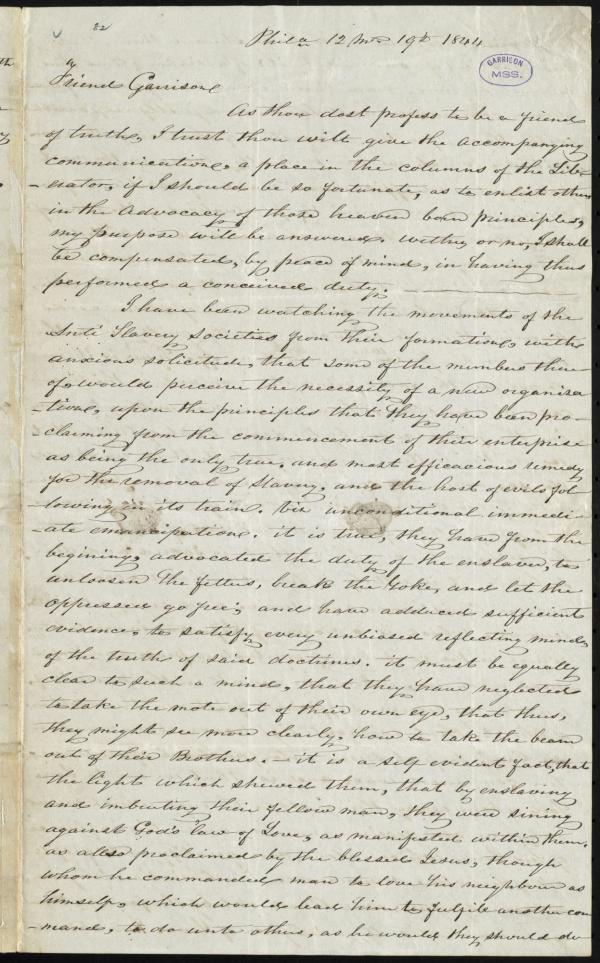 82
Phila 12 Mo 19th 1844
GARRISON
MSS.
Friend Garrison
As thou dost profess to be a friend
of truth, I trust thou wilt give the accompanying
communication, a place in the columns of the Lib-
-erator, if I should be so fortunate, as to enlist others
in the advocacy of those heaven born principles,
my purpose will be answered. wether or no, I shall
be compensated, by peace of mind, in having thus
performed a conceived duty.
I have been watching the movements of the
Anti Slavery Societies from their formation, with
anxious solicitude, that some of the members there-
of, would perceive the necessity of a new organiza
-tion, upon the principles that they have been pro-
-claiming from the commencement of their enterprise
as being the only true, and most efficacious remedy
for the removal of Slavery, and the host of evils fol
-lowing in its train. viz unconditional immedi-
-ate emancipation. it is true, they have from the
begining, advocated the duty of the enslaver, to
unloosen the fetters, break the Yoke, and let the
oppressed go free; and have adduced sufficient
evidence, to satisfy every unbiased reflecting mind,
of the truth of said doctrines. it must be equally
clear to such a mind, that they have neglected
to take the mote out of their own eye, that thus,
they might see more clearly, how to take the beam
out of their Brothers. - it is a self evident fact, that
the light which shewed them, that by enslaving
and imbruting their fellow man, they were sining
against God's law of Love, as manifested within them,
as also proclaimed by the blessed Jesus, though
whom he commanded man to love his neighbour as
himself, which would lead him to fulfile another com
-mand, to do unto others, as he would they should do